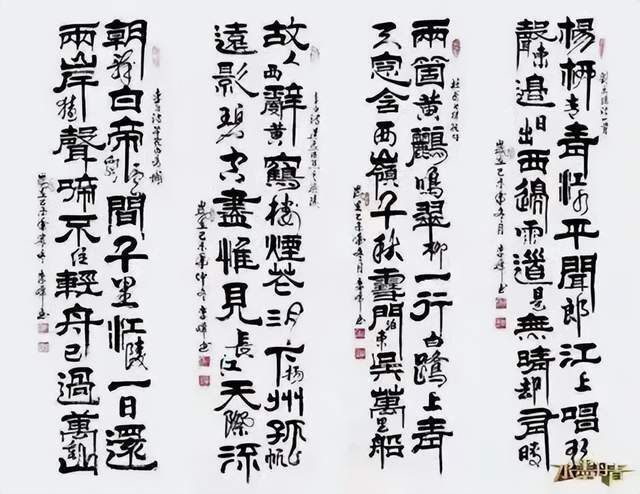 劉禹錫詩一首
楊柳青青江水平聞郎江上唱歌
聲東邊日出西邊雨道是無晴却有晴
杜甫詩絕句
兩箇黃鸝鳴翠柳一行白鷺上青
天窗含西嶺千秋雪門泊東吳萬里船
故人西辭黃鶴樓煙花三月下揚州孤帆
遠影碧空盡惟見長江天際流
朝辭白帝彩雲間千里江陵一日還
兩岸猿聲啼不住輕舟已過萬重山
水墨丹青